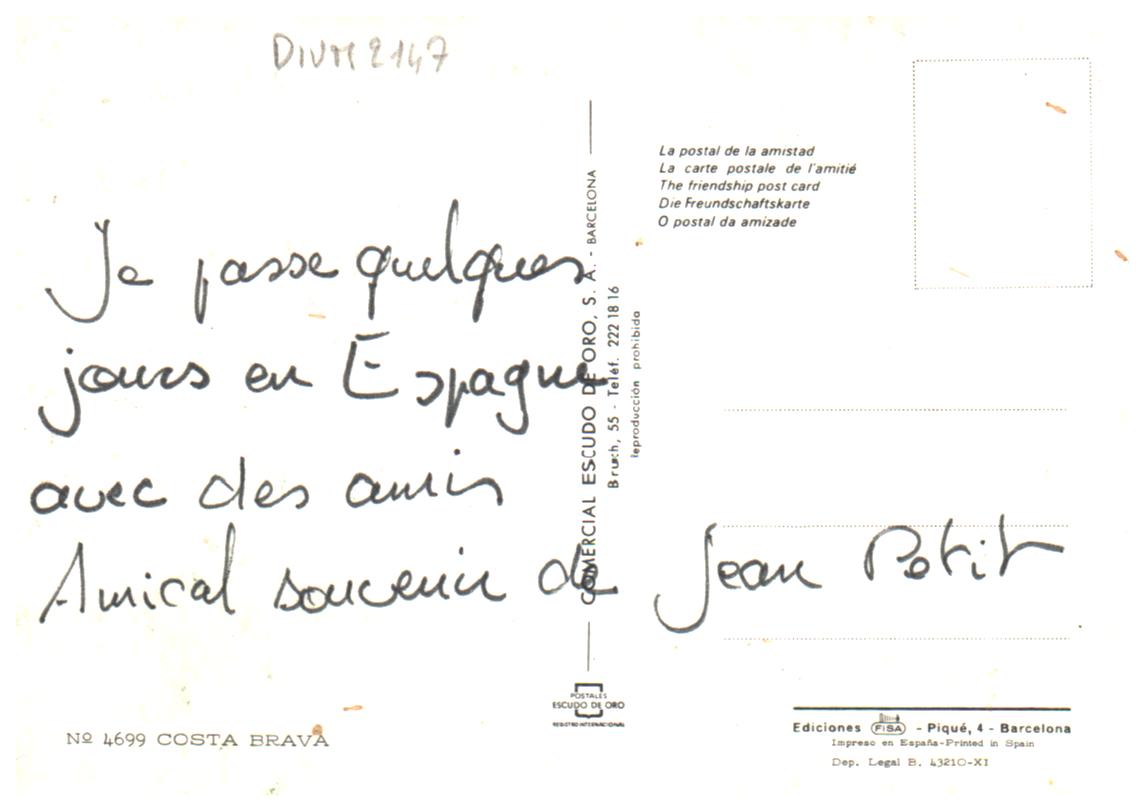 DIVM 2147
Je passe quelques
jours en Espagne
avec des amis
Amical souvenir de Jean Petit
Nº 4699 COSTA BRAVA
COMERCIAL ESCUDO DE ORO, S. A. - BARCELONA
Bruch, 55 - Teléf. 222 18 16
reproducción prohibida
POSTALES
ESCUDO DE ORO
REGISTRO INTERNACIONAL
La postal de la amistad
La carte postale de l'amitié
The friendship post card
Die Freundschaftskarte
O postal da amizade
Ediciones FISA - Piqué, 4 - Barcelona
Impreso en España-Printed in Spain
Dep. Legal B. 43210-XI